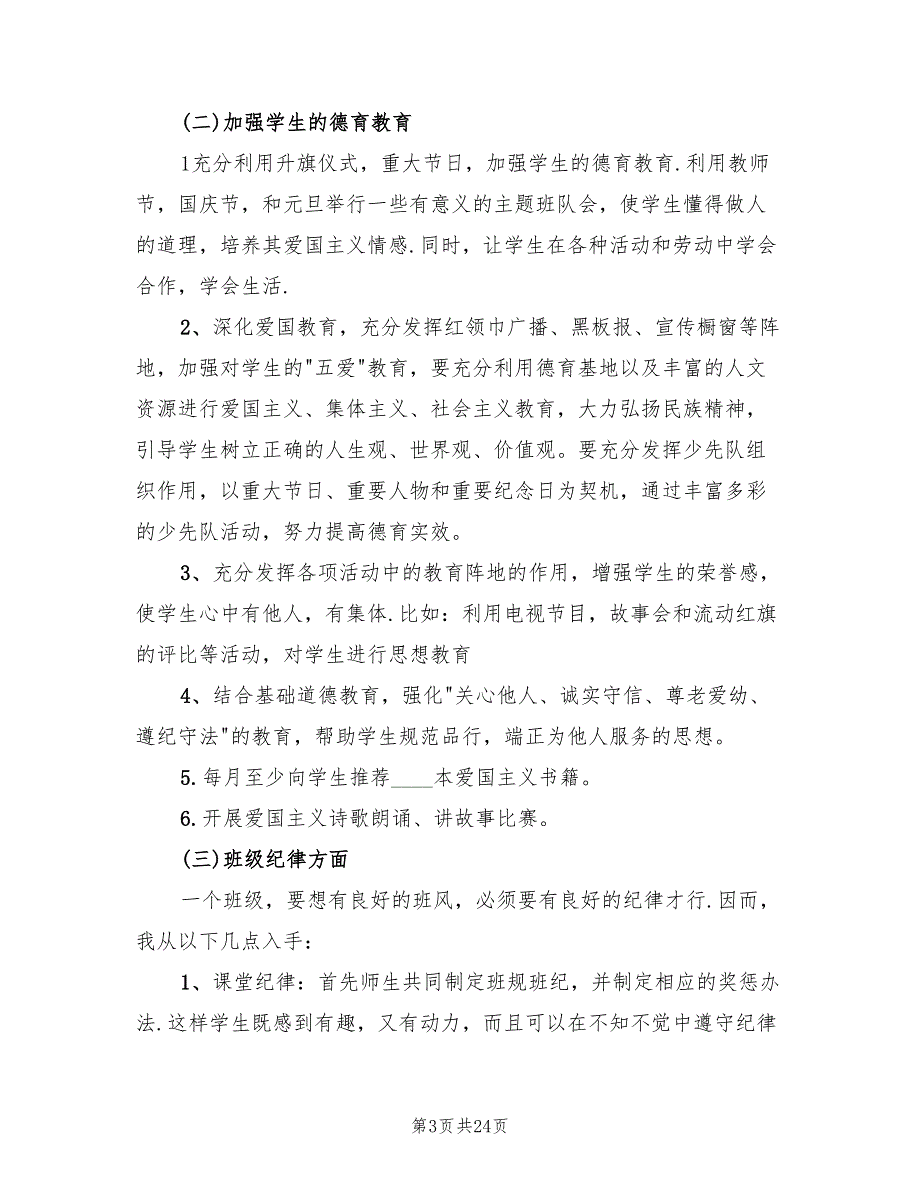 (二)加强学生的德育教育
1充分利用升旗仪式，重大节日，加强学生的德育教育.利用教师
节，国庆节，和元旦举行一些有意义的主题班队会，使学生懂得做人
的道理，培养其爱国主义情感.同时，让学生在各种活动和劳动中学会
合作，学会生活.
2、深化爱国教育，充分发挥红领巾广播、黑板报、宣传橱窗等阵
地，加强对学生的"五爱"教育，要充分利用德育基地以及丰富的人文
资源进行爱国主义、集体主义、社会主义教育，大力弘扬民族精神，
引导学生树立正确的人生观、世界观、价值观。要充分发挥少先队组
织作用，以重大节日、重要人物和重要纪念日为契机，通过丰富多彩
的少先队活动，努力提高德育实效。
3、充分发挥各项活动中的教育阵地的作用，增强学生的荣誉感，
使学生心中有他人，有集体.比如：利用电视节目，故事会和流动红旗
的评比等活动，对学生进行思想教育
4、结合基础道德教育，强化"关心他人、诚实守信、尊老爱幼、
遵纪守法"的教育，帮助学生规范品行，端正为他人服务的思想。
5.每月至少向学生推荐____本爱国主义书籍。
6.开展爱国主义诗歌朗诵、讲故事比赛。
(三)班级纪律方面
一个班级，要想有良好的班风，必须要有良好的纪律才行.因而，
我从以下几点入手：
1、课堂纪律：首先师生共同制定班规班纪，并制定相应的奖惩办
法.这样学生既感到有趣，又有动力，而且可以在不知不觉中遵守纪律
第3页共24页